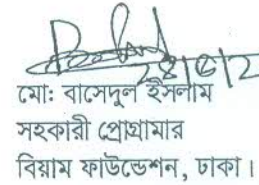 মো: বাসেদুল ইসলাম
সহকারী প্রোগ্রামার
বিয়াম ফাউন্ডেশন, ঢাকা।